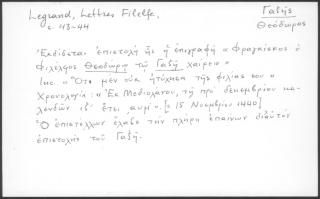 Legrand, Lettres Filelfe,
σ. 43-44
Γαζῆς
Θεόδωρος
Ἐκδίδεται ἐπιστολὴ ἧς ἡ ἐπιγραφὴ «Φραγκῖσκος ὁ
Φιλέλφος Θεοδώρῳ τῷ Γαζῇ χαίρειν»
Inc. «Ὅτι μὲν οὐκ ἠτύχησα τῆς φιλίας σου»
Χρονολογία: «Ἐκ Μεδιολάνου, τῇ πρὸ δεκεμβρίου κα-
λενδῶν ιζʹ ἔτει αυμʹ». [= 15 Νοεμβρίου 1440]
Ὁ ἐπιστέλλων ἔλαβε τὴν πλήρη ἐπαίνων δι' αὐτὸν
ἐπιστολὴν τοῦ Γαζῆ.